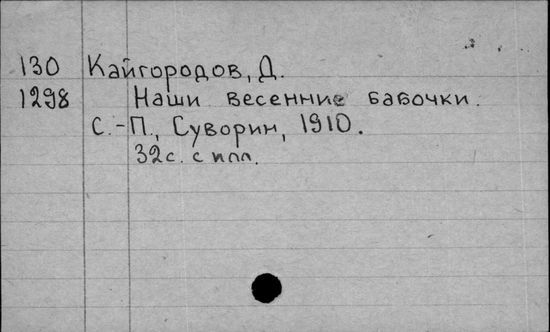 130 Кайгородов, Д.
1298 Наши весенние бабочки.
С.-П., Суворин, 1910.
32с. с илл.